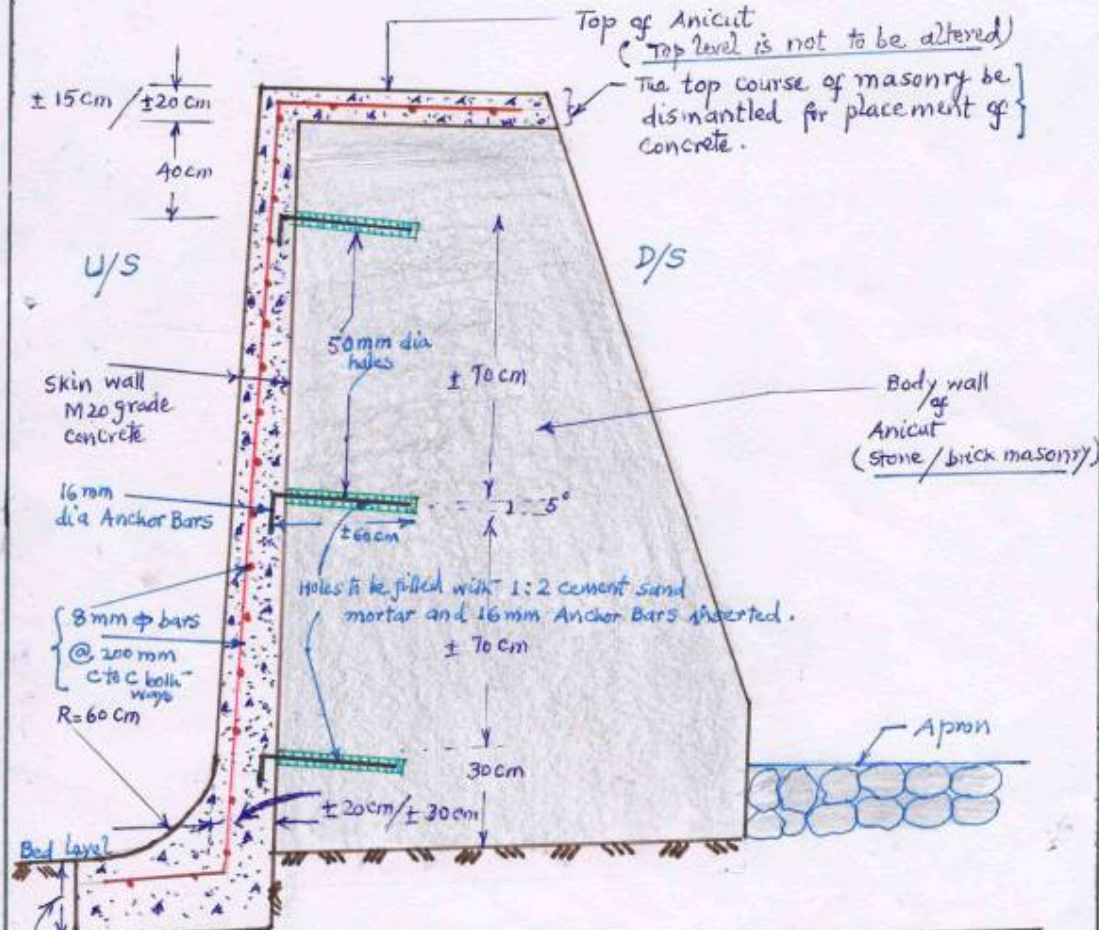 Top of Anicut
( Top level is not to be altered)
± 15 cm / ±20 cm
The top course of masonry be
dismantled for placement of
concrete.
40cm
U/S
D/S
50mm dia
holes
± 70 cm
Skin wall
M20 grade
concrete
Body wall
of
Anicut
(stone/brick masonry)
16 mm
dia Anchor Bars
5°
±60cm
Holes to be filled with 1:2 cement sand
mortar and 16mm Anchor Bars inserted.
8mm ф bars
@ 200 mm
C to C both
ways
± 70 cm
R=60 cm
Apron
30cm
±20cm/±30cm
Bed Level